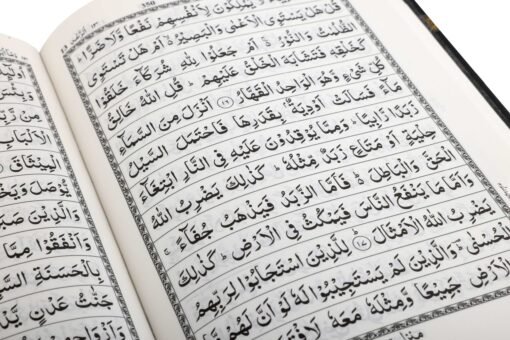 350
يَمْلِكُوْنَ لِاَنْفُسِهِمْ نَفْعًا وَّلَا ضَرًّا ؕ
قُلْ هَلْ يَسْتَوِى الْاَعْمٰى وَالْبَصِيْرُ ۙ اَمْ هَلْ تَسْتَوِى
الظُّلُمٰتُ وَالنُّوْرُ ۚ اَمْ جَعَلُوْا لِلّٰهِ شُرَكَآءَ خَلَقُوْا
كَخَلْقِهٖ فَتَشَابَهَ الْخَلْقُ عَلَيْهِمْ ؕ قُلِ اللّٰهُ خَالِقُ
كُلِّ شَىْءٍ وَّهُوَ الْوَاحِدُ الْقَهَّارُ ﴿١٦﴾ اَنْزَلَ مِنَ السَّمَآءِ
مَآءً فَسَالَتْ اَوْدِيَةٌۢ بِقَدَرِهَا فَاحْتَمَلَ السَّيْلُ
زَبَدًا رَّابِيًا ؕ وَمِمَّا يُوْقِدُوْنَ عَلَيْهِ فِى النَّارِ ابْتِغَآءَ
حِلْيَةٍ اَوْ مَتَاعٍ زَبَدٌ مِّثْلُهٗ ؕ كَذٰلِكَ يَضْرِبُ اللّٰهُ
الْحَقَّ وَالْبَاطِلَ ؕ فَاَمَّا الزَّبَدُ فَيَذْهَبُ جُفَآءً ۚ
وَاَمَّا مَا يَنْفَعُ النَّاسَ فَيَمْكُثُ فِى الْاَرْضِ ؕ كَذٰلِكَ
يَضْرِبُ اللّٰهُ الْاَمْثَالَ ﴿١٧﴾ لِلَّذِيْنَ اسْتَجَابُوْا لِرَبِّهِمُ
الْحُسْنٰى ؕ وَالَّذِيْنَ لَمْ يَسْتَجِيْبُوْا لَهٗ لَوْ اَنَّ لَهُمْ
الْاَرْضِ جَمِيْعًا وَّمِثْلَهٗ مَعَهٗ لَافْتَدَوْا
اُولٰٓئِكَ
مِنْ رَّبِّكَ
الْاَلْبَابِ
الْمِيْثَاقَ
يُوْصَلَ
وَالَّذِيْنَ
وَاَنْفَقُوْا مِمَّا
بِالْحَسَنَةِ
جَنّٰتُ عَدْنٍ
وَاَزْوَاجِهِمْ